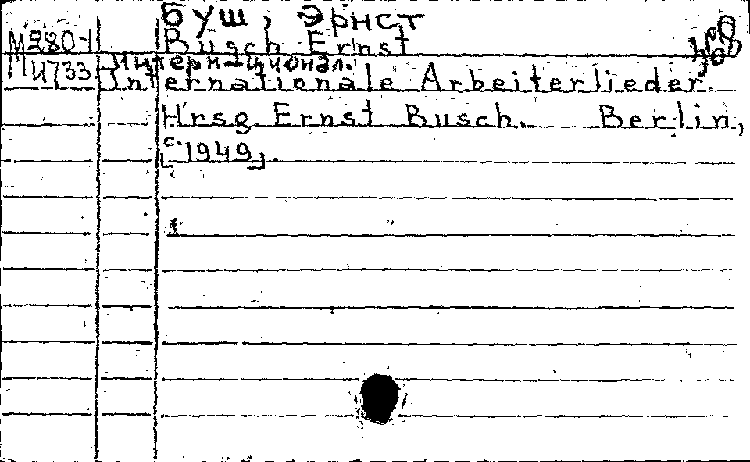 Буш, Эрнст
М280-1 Busch Ernst
И733 Интернационал.
Internationale Arbeiterlieder.
Hrsg. Ernst Busch. Berlin,
[c. 1949].